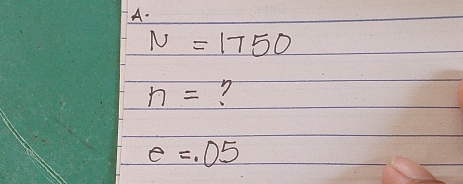 A.
N = 1750
n = ?
e = .05